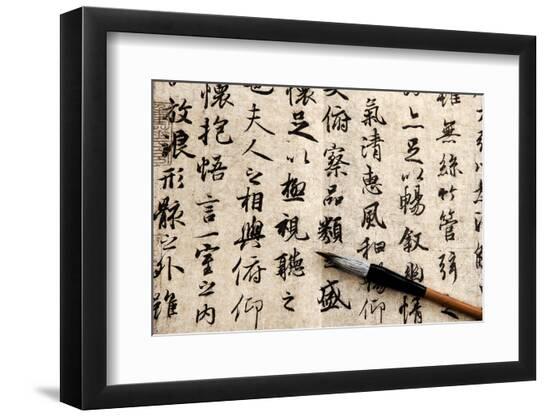 以為流
雖無絲竹管弦
亦足以暢敘幽情
氣清惠風和暢仰
大俯察品類之盛
懷足以極視聽之
也夫人之相與俯仰
懷抱悟言一室之內
放浪形骸之外雖